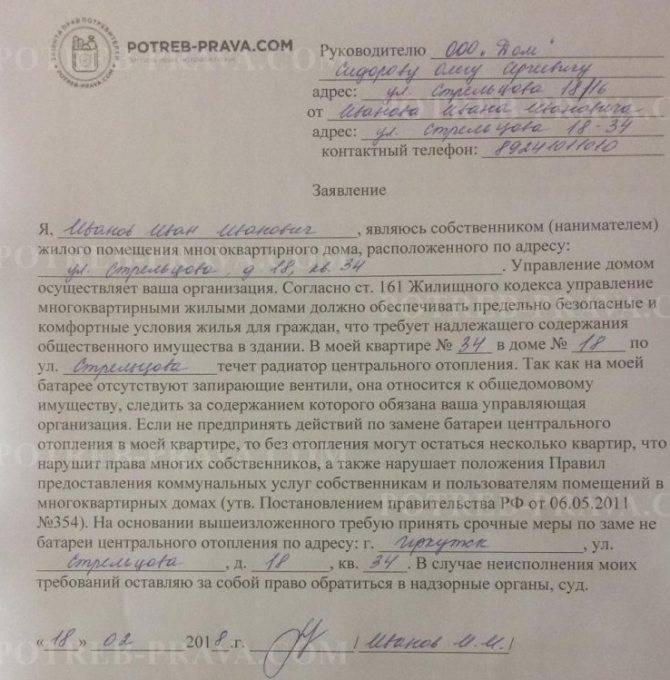 POTREB-PRAVA.COM
Руководителю ООО "Дом"
Сидорову Олегу Сергеевичу
адрес: ул. Стрельцова 18/16
от Иванова Ивана Ивановича
адрес: ул. Стрельцова 18-34
контактный телефон: 89241011010
Заявление
Я, Иванов Иван Иванович, являюсь собственником (нанимателем)
жилого помещения многоквартирного дома, расположенного по адресу:
ул. Стрельцова д 18, кв. 34. Управление домом
осуществляет ваша организация. Согласно ст. 161 Жилищного кодекса управление
многоквартирными жилыми домами должно обеспечивать предельно безопасные и
комфортные условия жилья для граждан, что требует надлежащего содержания
общественного имущества в здании. В моей квартире № 34 в доме № 18 по
ул. Стрельцова течет радиатор центрального отопления. Так как на моей
батарее отсутствуют запирающие вентили, она относится к общедомовому
имуществу, следить за содержанием которого обязана ваша управляющая
организация. Если не предпринять действий по замене батареи центрального
отопления в моей квартире, то без отопления могут остаться несколько квартир, что
нарушит права многих собственников, а также нарушает положения Правил
предоставления коммунальных услуг собственникам и пользователям помещений в
многоквартирных домах (утв. Постановлением правительства РФ от 06.05.2011
№354). На основании вышеизложенного требую принять срочные меры по заме не
батареи центрального отопления по адресу: г. Иркутск, ул.
Стрельцова, д. 18, кв. 34. В случае неисполнения моих
требований оставляю за собой право обратиться в надзорные органы, суд.
«18» 02 2018.г. / Иванов И.И. /